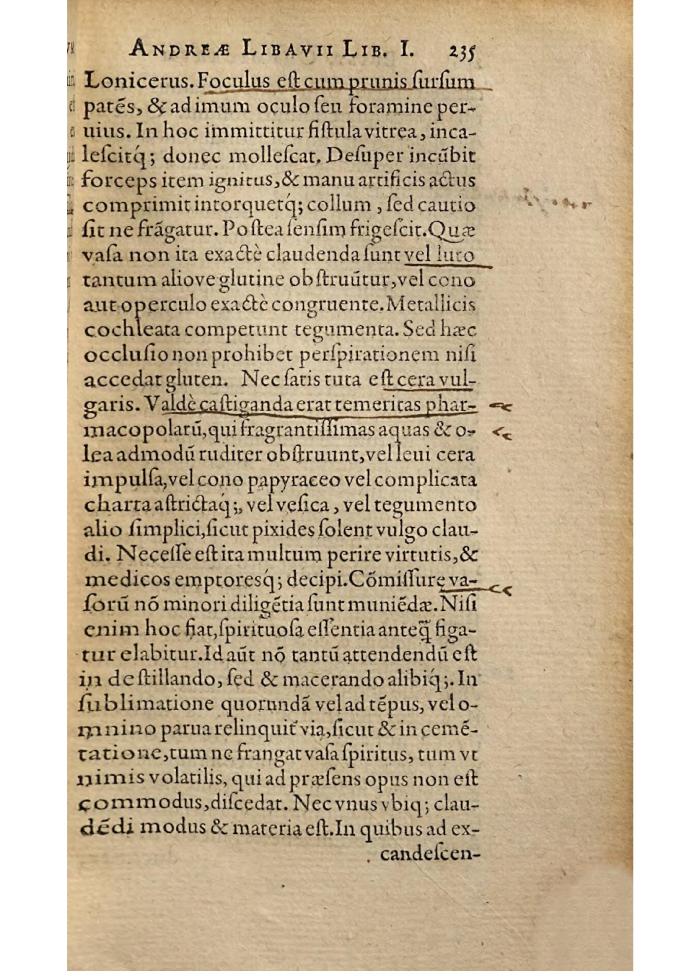 ANDREÆ LIBAVII LIB. I. 235
Lonicerus. Foculus eſt cum prunis ſurſum
patēs, & ad imum oculo ſeu foramine per-
uius. In hoc immittitur fiſtula vitrea, inca-
leſcitq́; donec molleſcat. Deſuper incūbit
forceps item ignitus, & manu artificis actus
comprimit intorquetq́; collum, ſed cautio
ſit ne frāgatur. Poſtea ſenſim frigeſcit. Quæ
vaſa non ita exactè claudenda ſunt vel luto
tantum aliove glutine obſtruūtur, vel cono
aut operculo exactè congruente. Metallicis
cochleata competunt tegumenta. Sed hæc
occluſio non prohibet perſpirationem niſi
accedat gluten. Nec ſatis tuta eſt cera vul-
garis. Valdè caſtiganda erat temeritas phar-
macopolarū, qui fragrantiſſimas aquas & o-
lea admodū ruditer obſtruunt, vel leui cera
impulſa, vel cono papyraceo vel complicata
charta aſtrictaq́;, vel veſica, vel tegumento
alio ſimplici, ſicut pixides ſolent vulgo clau-
di. Neceſſe eſt ita multum perire virtutis, &
medicos emptoresq́; decipi. Cōmiſſure va-
ſorū nō minori diligētia ſunt muniēdæ. Niſi
enim hoc fiat, ſpirituoſa eſſentia anteq̄ figa-
tur elabitur. Id aūt nō tantū attendendū eſt
in deſtillando, ſed & macerando alibiq́;. In
ſublimatione quorundā vel ad tēpus, vel o-
mnino parua relinquit᷑ via, ſicut & in cemē-
tatione, tum ne frangat vaſa ſpiritus, tum vt
nimis volatilis, qui ad præſens opus non eſt
commodus, diſcedat. Nec vnus vbiq́; clau-
dēdi modus & materia eſt. In quibus ad ex-
candeſcen-